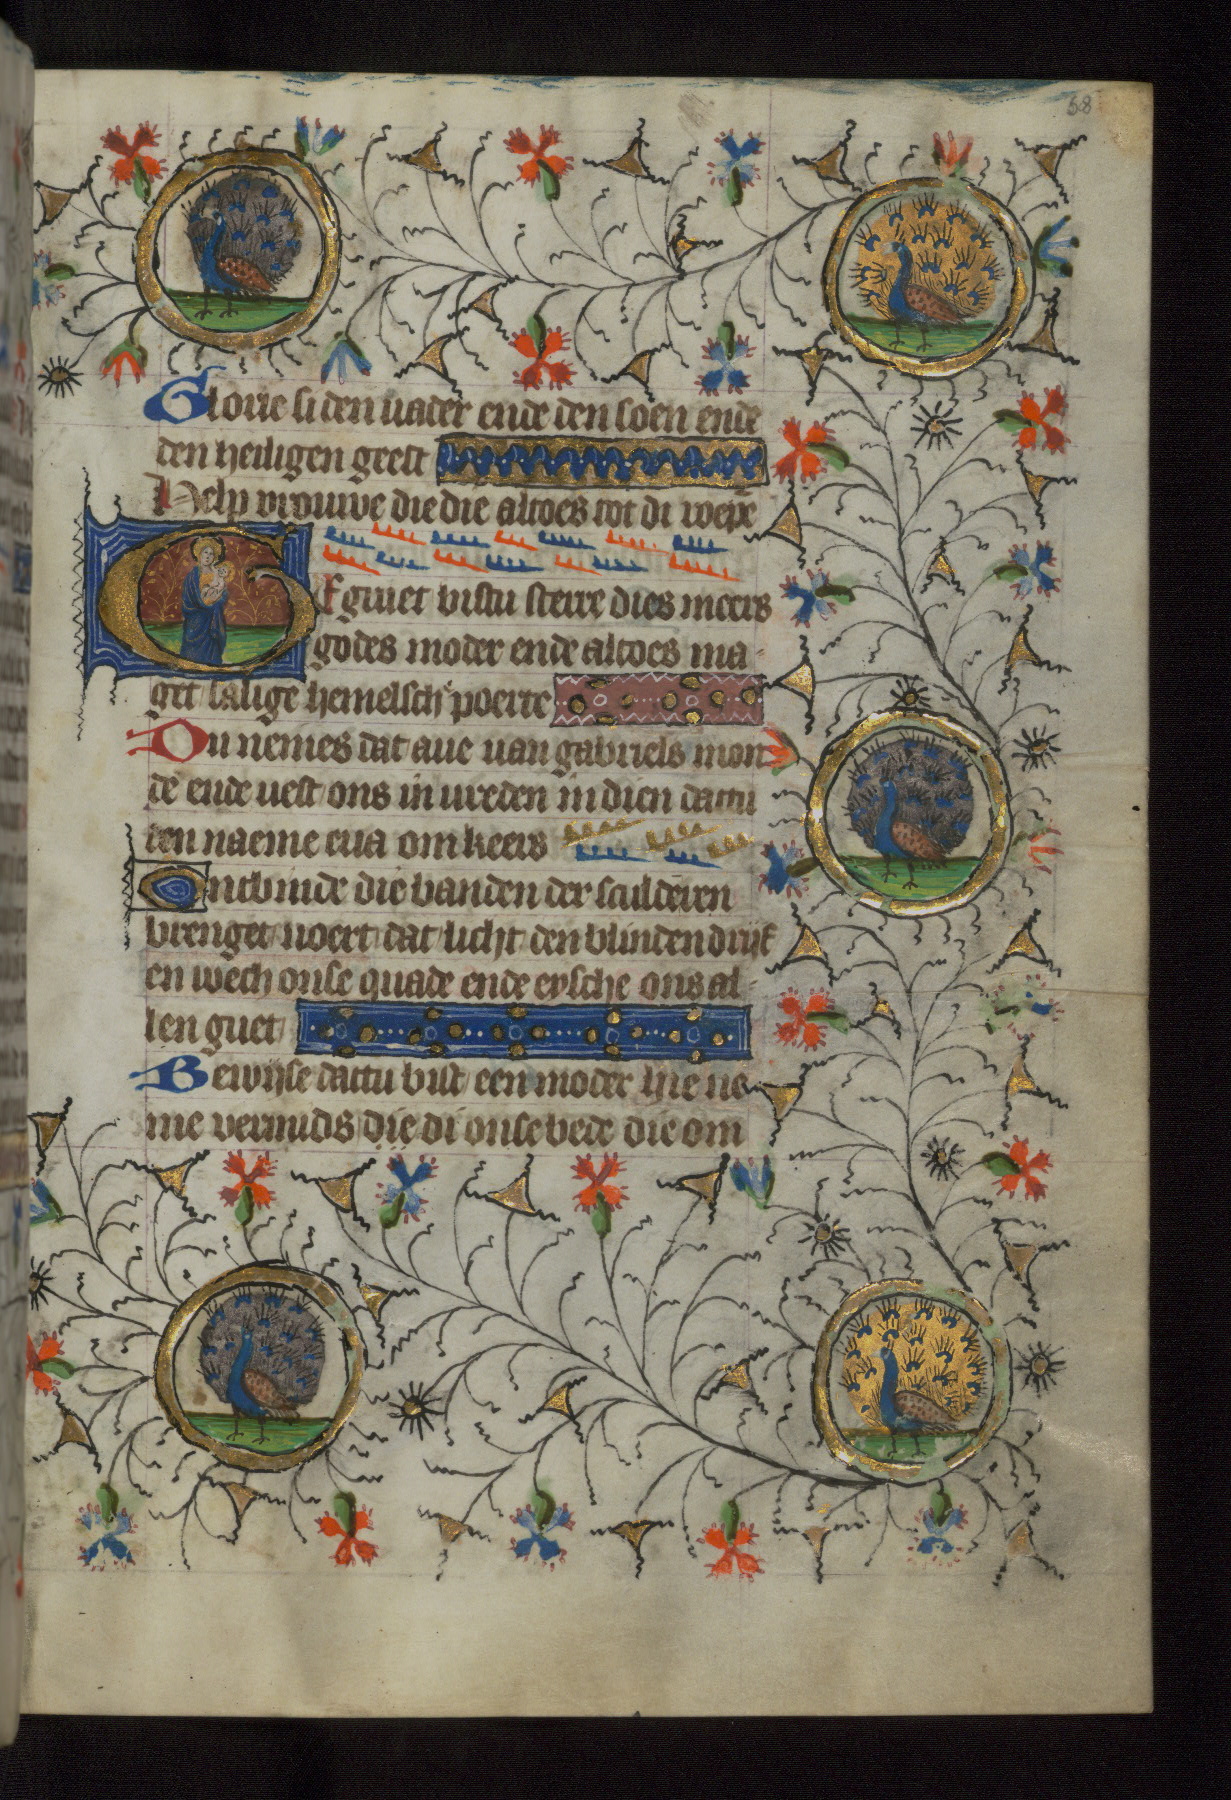 68
Glorie si den uader ende den soen ende
den heiligen geest
Help vrouwe die die altoes tot di roepē
GEgruet bistu sterre dies meers
godes moder ende altoes ma
get salige hemelsch poerte
Du nemes dat aue uan gabriels mon
de ende uest ons in vreden in dien dattu
den naeme eua omkeers
Ontbinde die banden der sculderen
brenget uoert dat licht den blinden drijf
en wech onse quade ende eysche ons al
len guet
Bewijse dattu bist een moder hie ne
me vermids die di onse bede die om